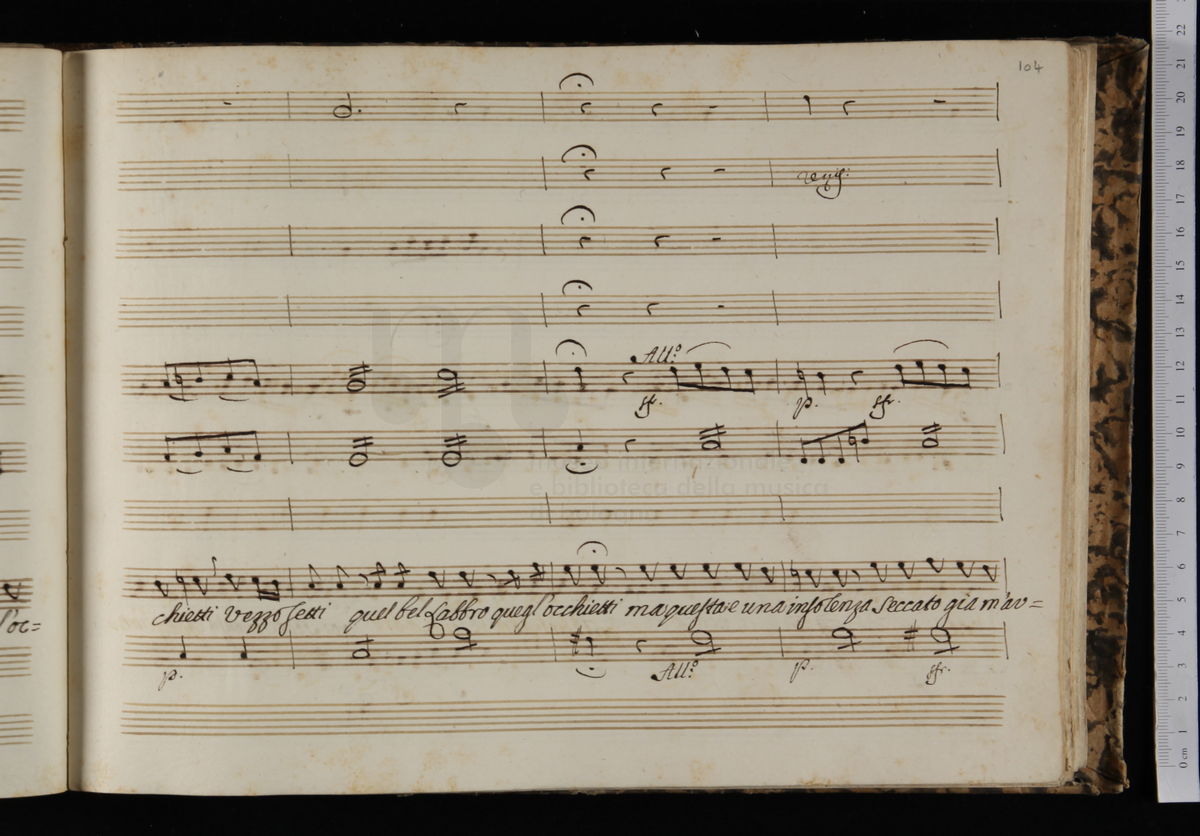 104
All.º
sf.
p.
sfr.
chietti vezzosetti quel bel labbro quegl'occhietti ma questa è una insolenza seccato già m'av=
l'oc=
p.
All.º
p.
sfr.
museo internazionale
e biblioteca della musica
di bologna
22
21
20
19
18
17
16
15
14
13
12
11
10
9
8
7
6
5
4
3
2
1
0 cm